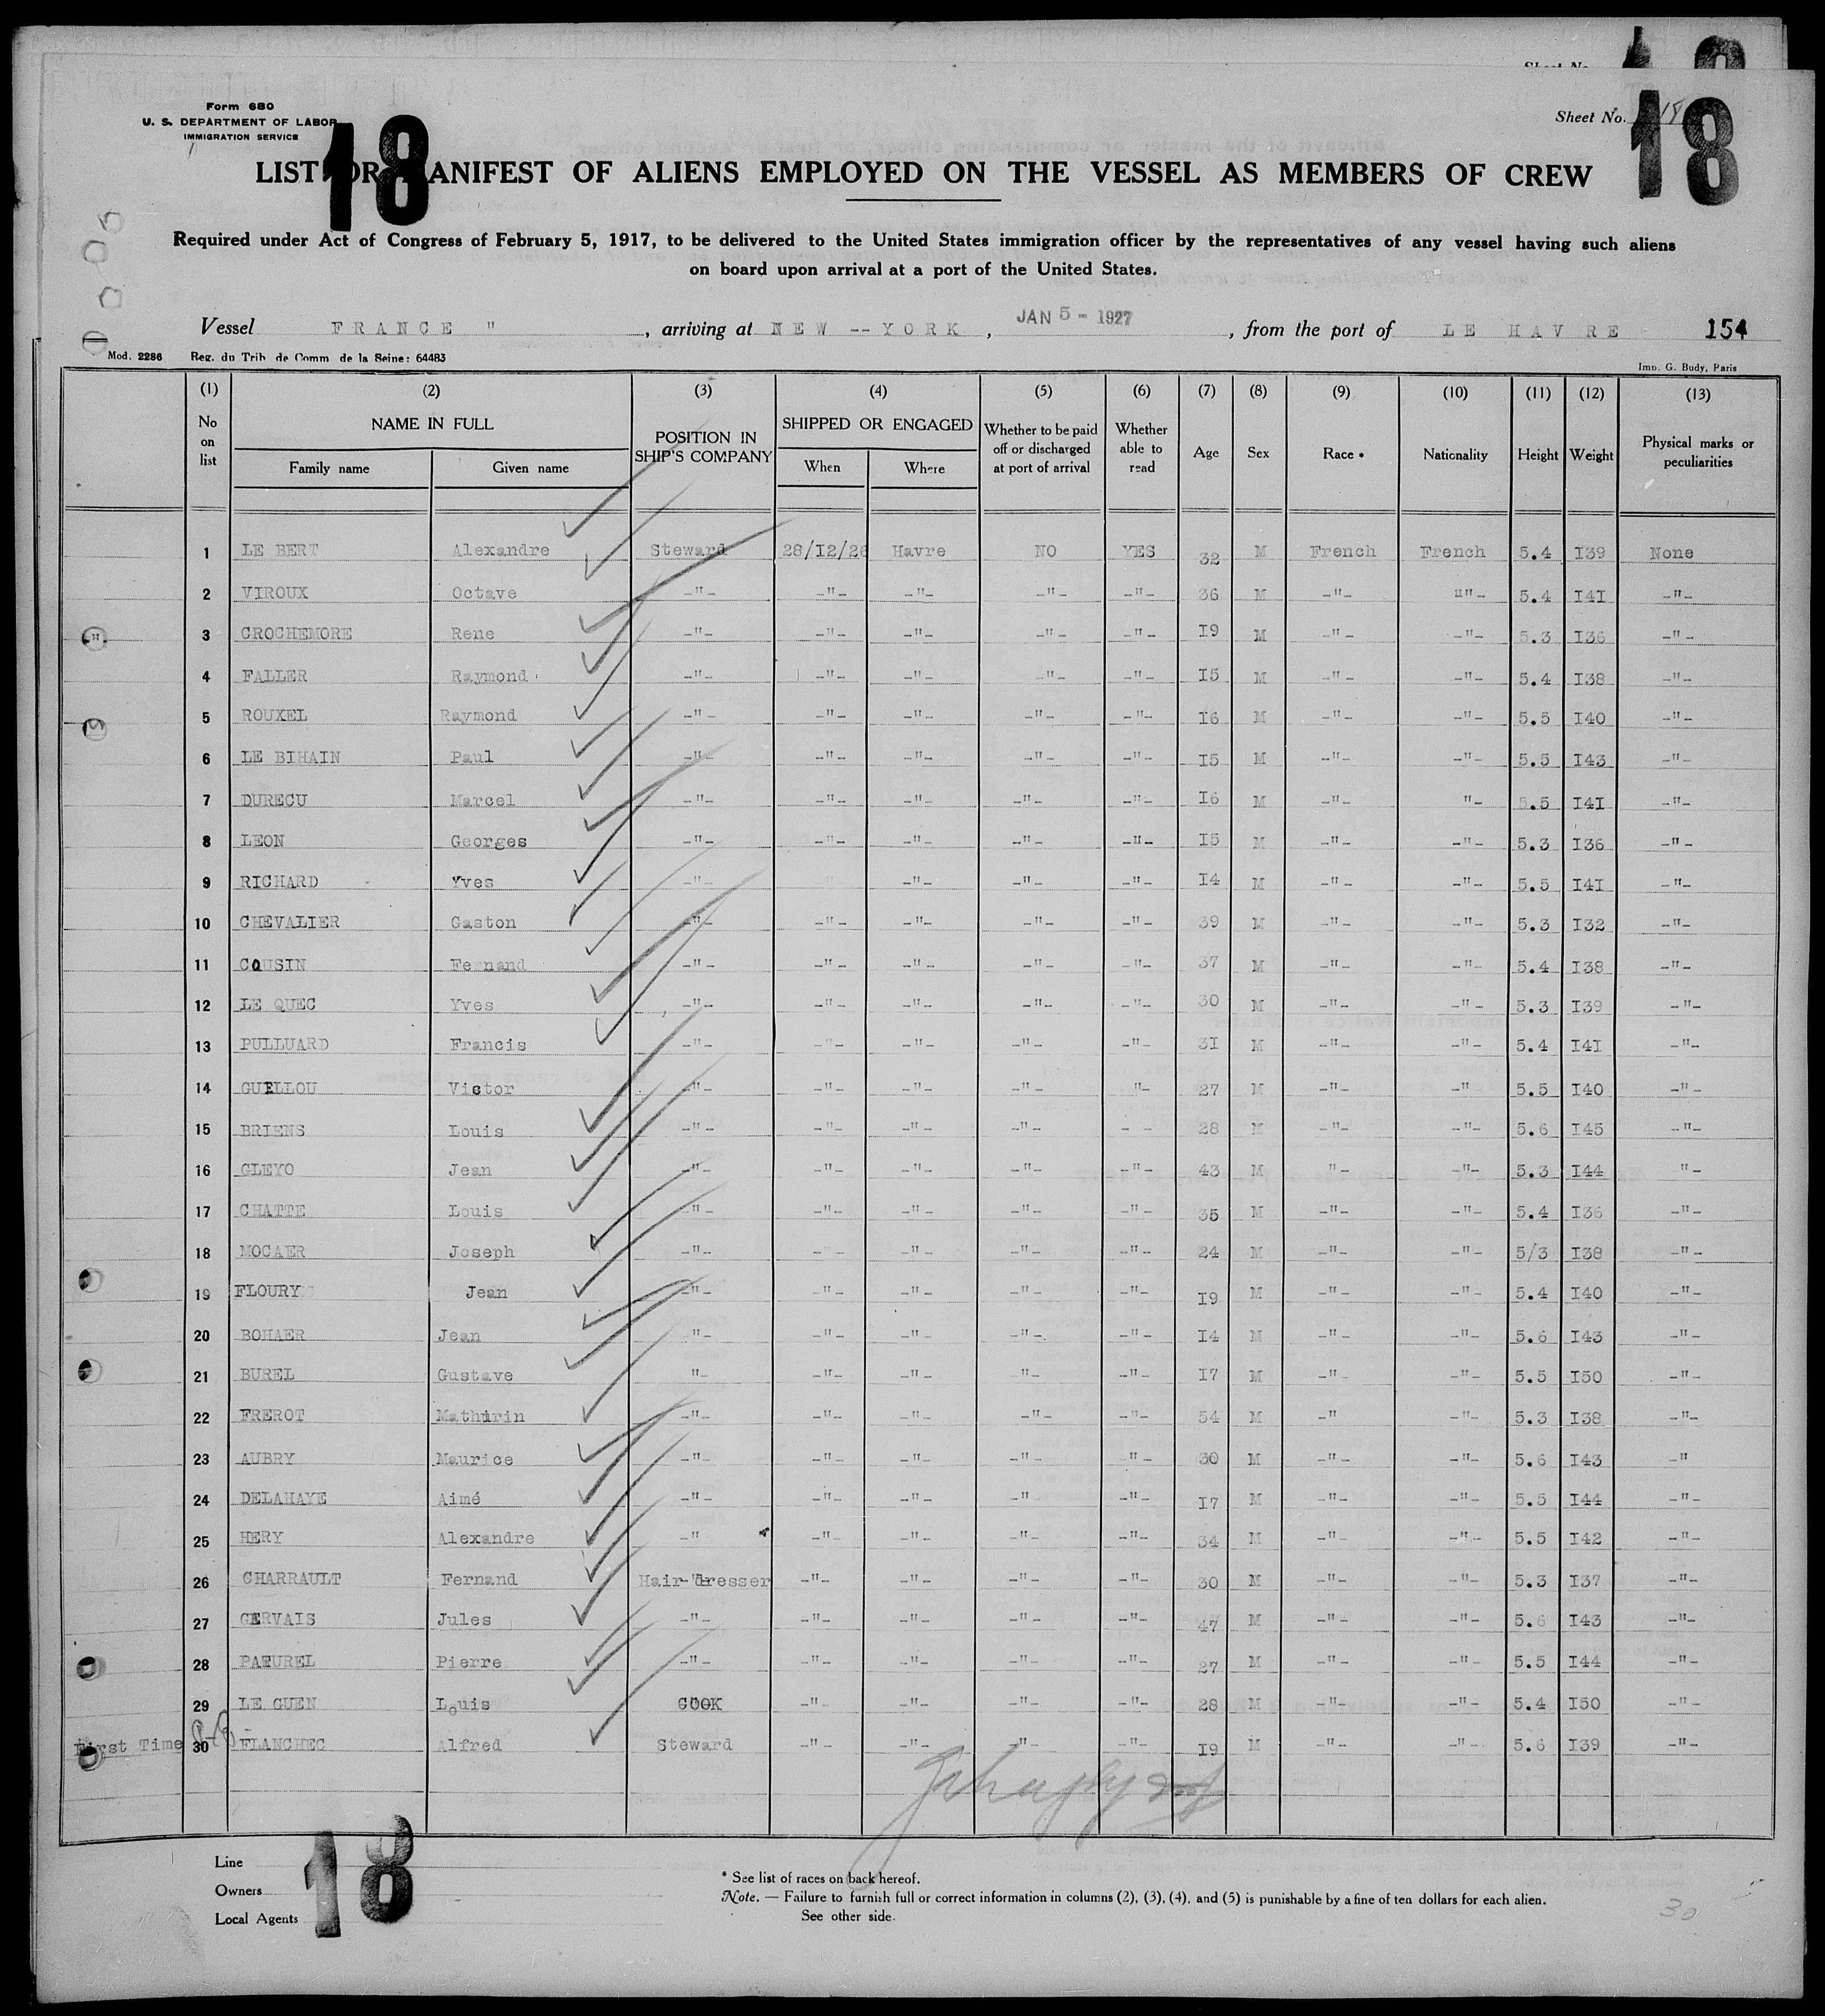 Sheet No.
18
Form 680
U. S. DEPARTMENT OF LABOR
IMMIGRATION SERVICE
Sheet No. 18
18
18
LIST OR MANIFEST OF ALIENS EMPLOYED ON THE VESSEL AS MEMBERS OF CREW
Required under Act of Congress of February 5, 1917, to be delivered to the United States immigration officer by the representatives of any vessel having such aliens
on board upon arrival at a port of the United States.
Vessel FRANCE " , arriving at NEW -- YORK , JAN 5 - 1927 , from the port of LE HAVRE 154
Mod. 2286 Reg. du Trib. de Comm. de la Seine: 64483 Imp. G. Budy, Paris
(1) (2) (3) (4) (5) (6) (7) (8) (9) (10) (11) (12) (13)
No on list NAME IN FULL POSITION IN SHIP'S COMPANY SHIPPED OR ENGAGED Whether to be paid off or discharged at port of arrival Whether able to read Age Sex Race * Nationality Height Weight Physical marks or peculiarities
Family name Given name When Where
1 LE BERT Alexandre Steward 28/12/26 Havre NO YES 32 M French French 5.4 139 None
2 VIROUX Octave -"- -"- -"- -"- -"- 36 M -"- ""- 5.4 141 -"-
3 CROCHEMORE Rene -"- -"- -"- -"- -"- 19 M -"- -"- 5.3 136 -"-
4 FALLER Raymond -"- -"- -"- -"- -"- 15 M -"- -"- 5.4 138 -"-
5 ROUXEL Raymond -"- -"- -"- -"- -"- 16 M -"- -"- 5.5 140 -"-
6 LE BIHAIN Paul -"- -"- -"- -"- -"- 15 M -"- -"- 5.5 143 -"-
7 DURECU Marcel -"- -"- -"- -"- -"- 16 M -"- "- 5.5 141 -"-
8 LEON Georges -"- -"- -"- -"- -"- 15 M -"- -"- 5.3 136 -"-
9 RICHARD Yves -"- -"- -"- -"- -"- 14 M -"- -"- 5.5 141 -"-
10 CHEVALIER Gaston -"- -"- -"- -"- -"- 39 M -"- -"- 5.3 132 -"-
11 COUSIN Fernand -"- -"- -"- -"- -"- 37 M -"- -"- 5.4 138 -"-
12 LE QUEC Yves -"- -"- -"- -"- -"- 30 M -"- -"- 5.3 139 -"-
13 PULLUARD Francis -"- -"- -"- -"- -"- 31 M -"- -"- 5.4 141 -"-
14 GUELLOU Victor -"- -"- -"- -"- "- 27 M -"- -" 5.5 140 -"-
15 BRIENS Louis -"- -"- -"- -"- - - 28 M -"- -"- 5.6 145 -"-
16 GLEYO Jean -"- -"- -"- -"- -"- 43 M "- -"- 5.3 144 "-
17 CHATTE Louis -"- -"- -"- -"- -"- 35 M -"- -"- 5.4 136 -"-
18 MOCAER Joseph -"- -"- -"- -"- -"- 24 M -"- -"- 5/3 138 -"-
19 FLOURY Jean -"- -"- -"- -"- -"- 19 M -"- -"- 5.4 140 -"-
20 BOHAER Jean "- -"- -"- -"- -"- 14 M -"- -"- 5.6 143 -"-
21 BUREL Gustave "- -"- -"- -"- -"- 17 M -"- -"- 5.5 150 -"-
22 FREROT Mathurin -"- -"- -"- -"- -"- 54 M -" -"- 5.3 138 -"-
23 AUBRY Maurice -"- -"- -"- -"- -"- 30 M -"- -"- 5.6 143 -"
24 DELAHAYE Aimé -"- -"- -"- -"- -"- 17 M -"- -"- 5.5 144 -"-
25 HERY Alexandre -" -"- -"- -"- -"- 34 M -"- -"- 5.5 142 -"-
26 CHARRAULT Fernand Hair-dresser -"- -"- -"- -"- 30 M -"- -"- 5.3 137 -"-
27 GERVAIS Jules -"- -"- -"- -"- -"- 47 M -"- -"- 5.6 143 -"-
28 PATUREL Pierre -"- -"- -"- -"- -"- 27 M -"- -"- 5.5 144 -"-
29 LE GUEN Louis COOK -"- -"- -"- -"- 28 M -"- -"- 5.4 150 -"-
First Time 30 FLANCHEC Alfred Steward -"- -"- -"- -"- 19 M -"- -"- 5.6 139 -"-
Line
18
Owners
Local Agents
* See list of races on back hereof.
Note. — Failure to furnish full or correct information in columns (2), (3), (4), and (5) is punishable by a fine of ten dollars for each alien.
See other side.
30